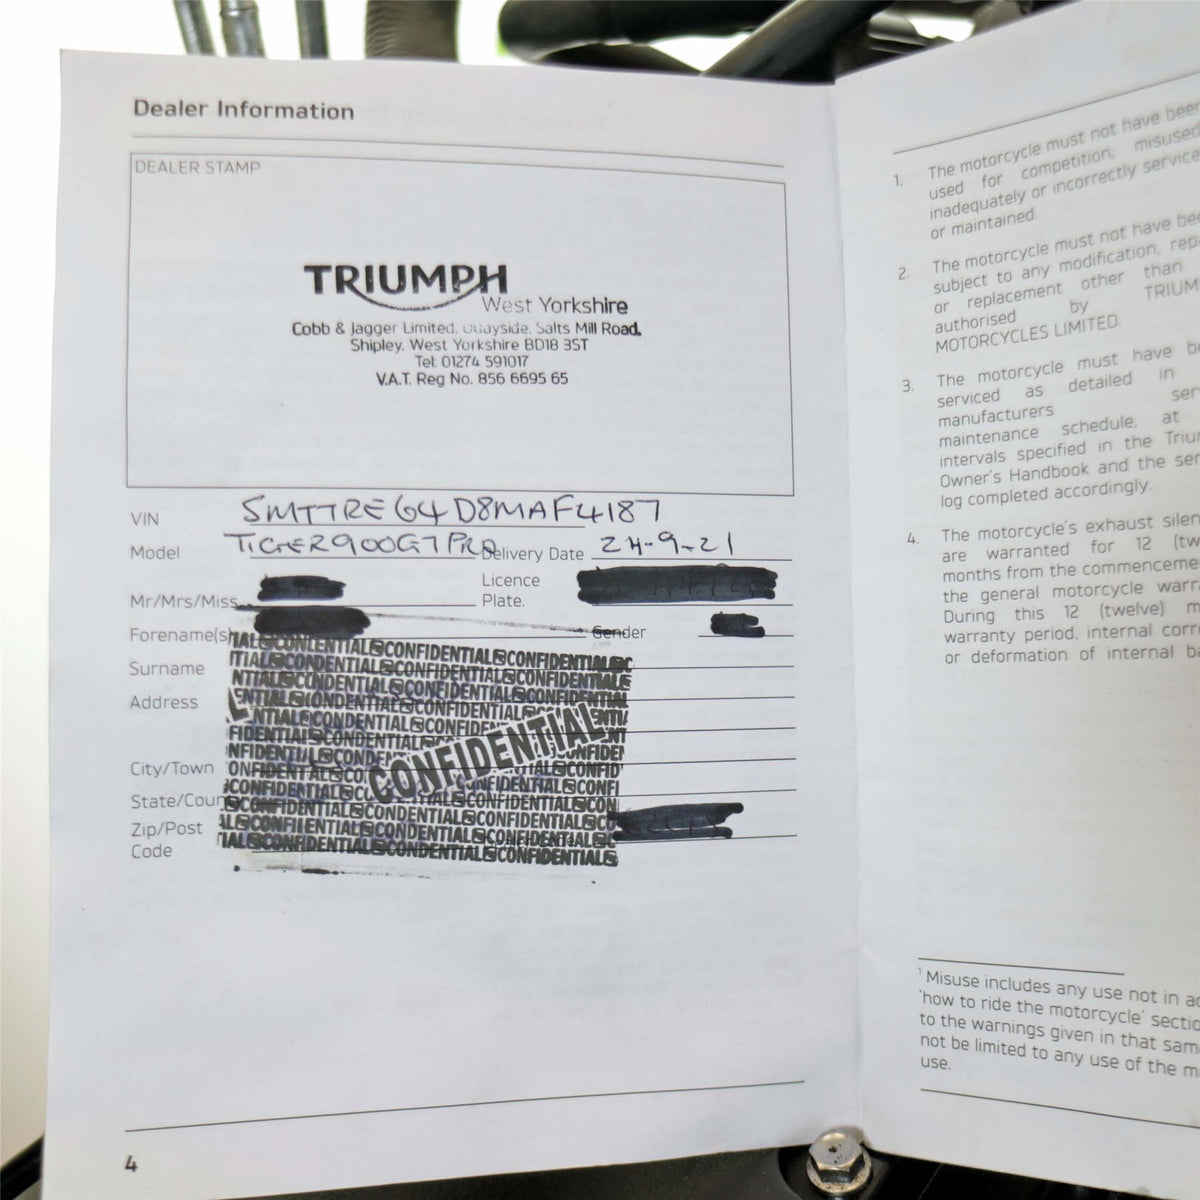 Dealer Information
DEALER STAMP
TRIUMPH
West Yorkshire
Cobb & Jagger Limited. Quayside. Salts Mill Road,
Shipley. West Yorkshire BD18 3ST
Tel: 01274 591017
V.A.T. Reg No. 856 6695 65
VIN SMTTRE64D8MAF4187
Model TIGER900GTPRO Delivery Date 24-9-21
Mr/Mrs/Miss Licence Plate.
Forename(s) Gender
Surname
Address
City/Town
State/Coun
Zip/Post
Code
CONFIDENTIAL
4
1. The motorcycle must not have been
used for competition, misused
inadequately or incorrectly service
or maintained.
2. The motorcycle must not have bee
subject to any modification, rep
or replacement other than
authorised by TRIUM
MOTORCYCLES LIMITED.
3. The motorcycle must have be
serviced as detailed in
manufacturers ser
maintenance schedule, at
intervals specified in the Triu
Owner's Handbook and the ser
log completed accordingly.
4. The motorcycle's exhaust silen
are warranted for 12 (tw
months from the commenceme
the general motorcycle warr
During this 12 (twelve) m
warranty period, internal corr
or deformation of internal ba
1 Misuse includes any use not in ac
'how to ride the motorcycle' sectio
to the warnings given in that sam
not be limited to any use of the m
use.